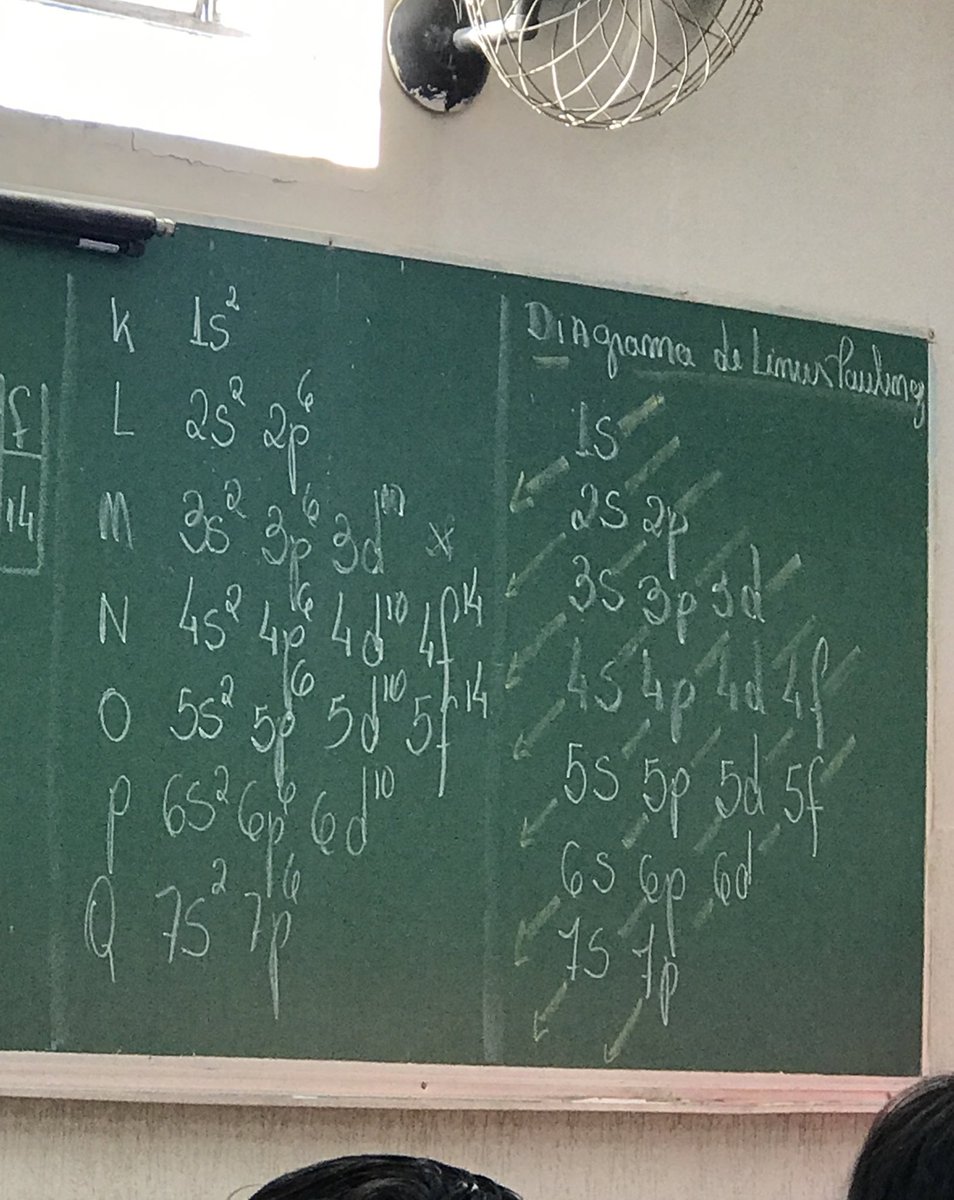 f
14
K 1s²
L 2s² 2p⁶
M 3s² 3p⁶ 3d¹⁰ x
N 4s² 4p⁶ 4d¹⁰ 4f¹⁴
O 5s² 5p⁶ 5d¹⁰ 5f¹⁴
P 6s² 6p⁶ 6d¹⁰
Q 7s² 7p⁶
Diagrama de Linus Pauling
1s
2s 2p
3s 3p 3d
4s 4p 4d 4f
5s 5p 5d 5f
6s 6p 6d
7s 7p